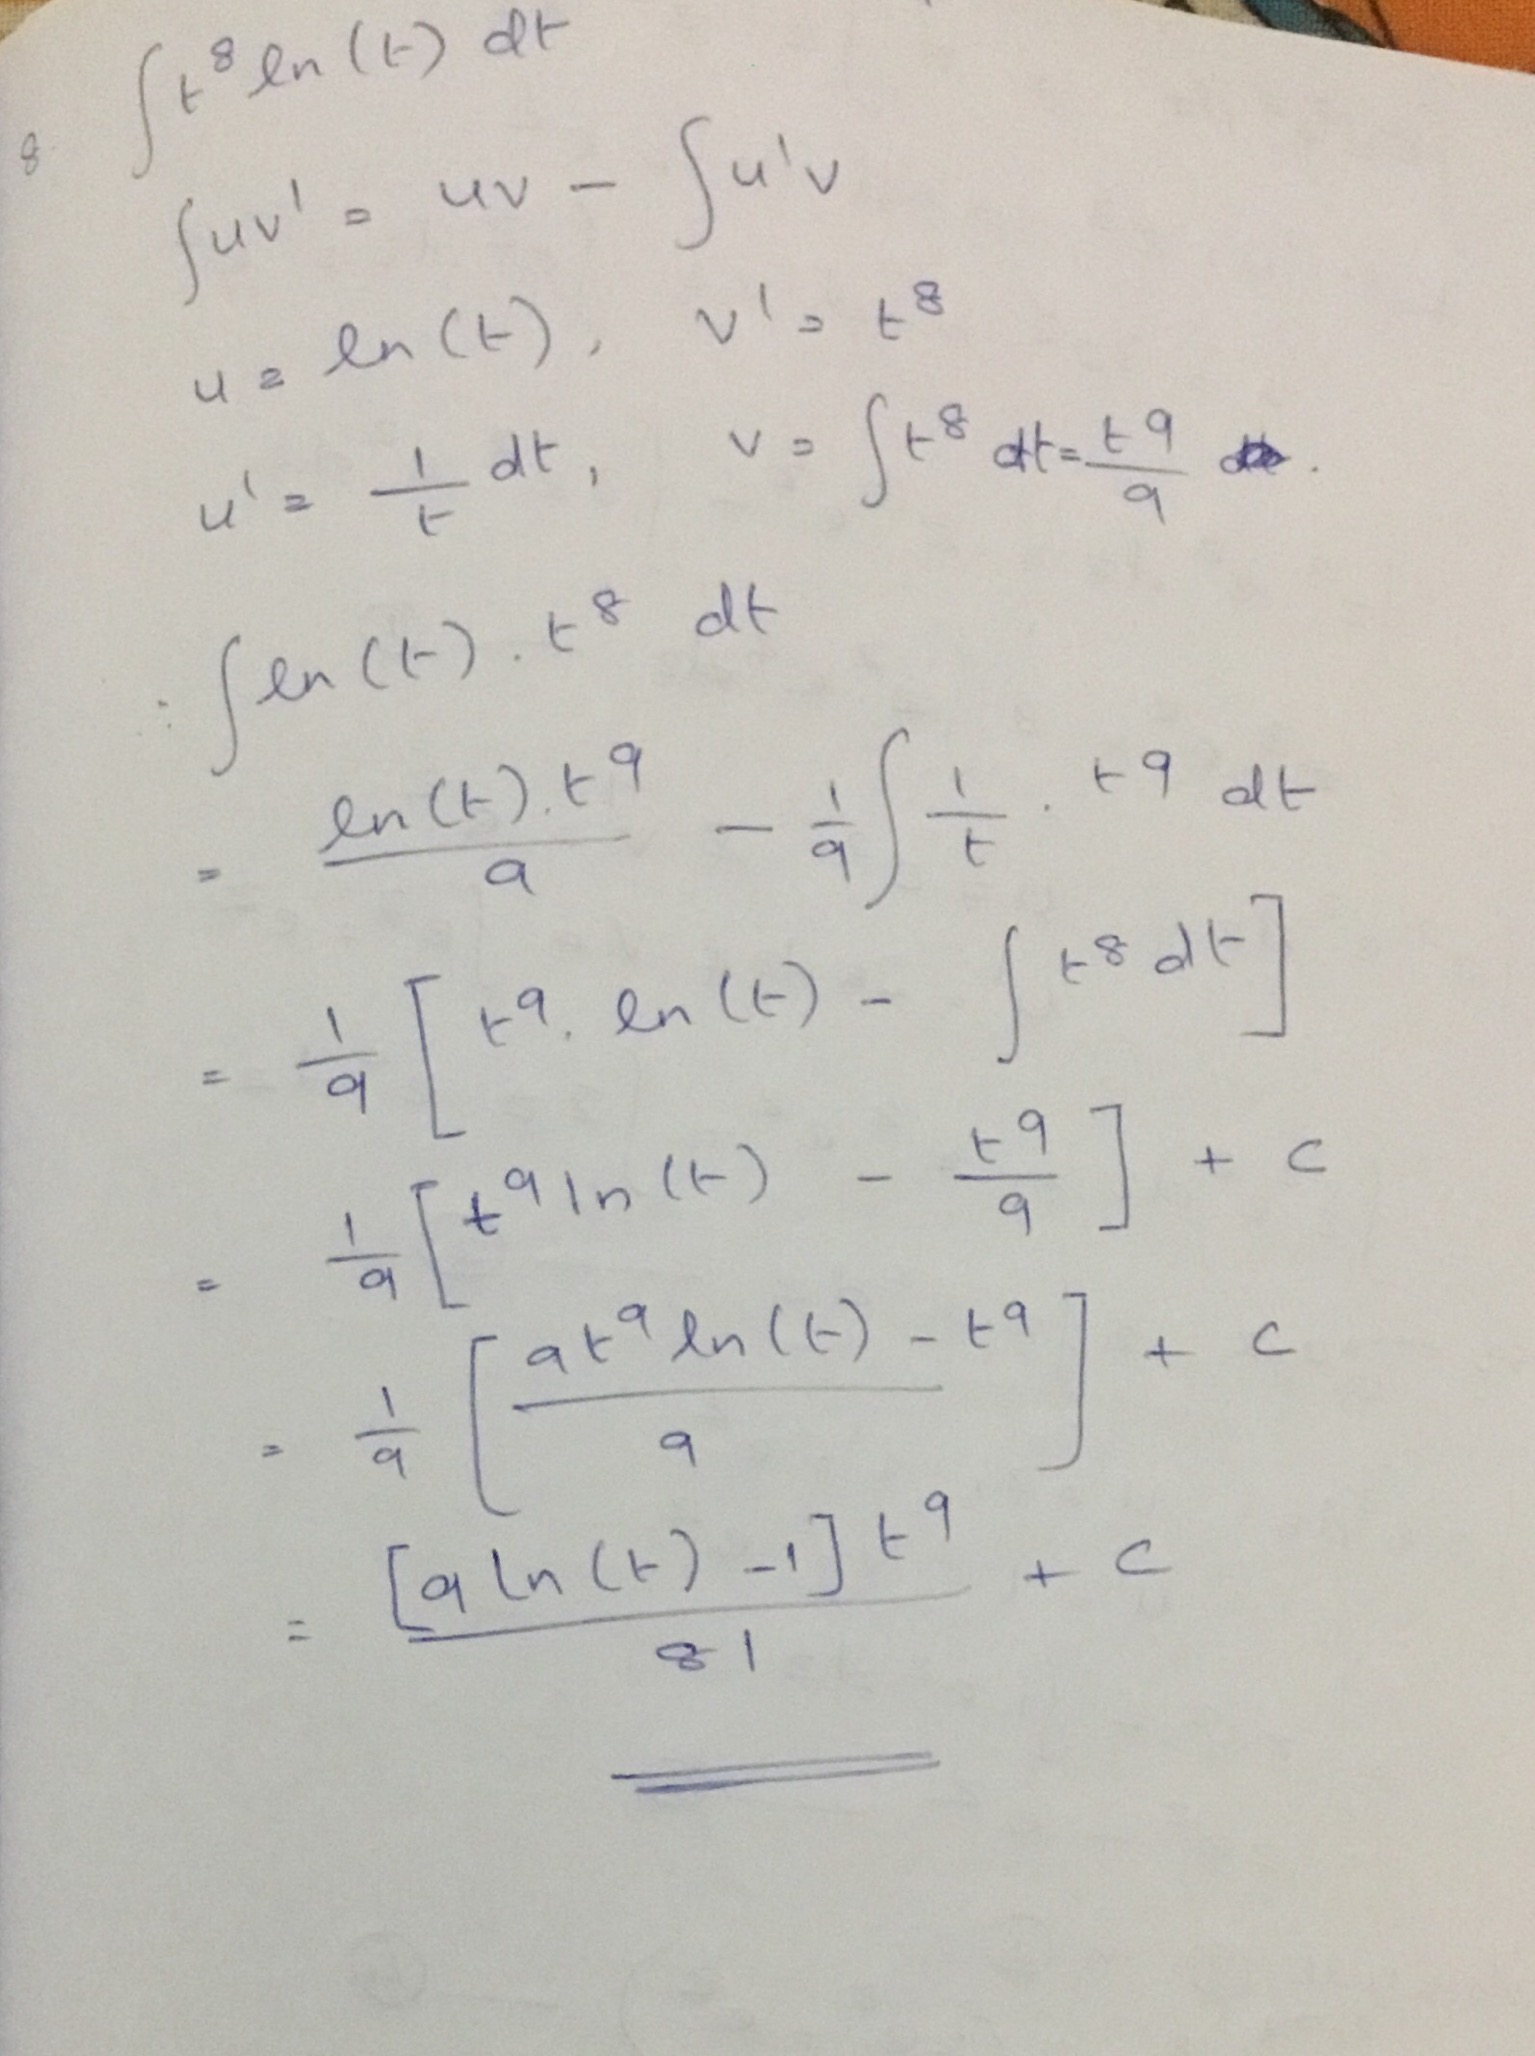 8. ∫ t⁸ ln (t) dt
∫uv' = uv - ∫u'v
u = ln (t), v' = t⁸
u' = 1/t dt, v = ∫t⁸ dt = t⁹/9 .
∫ ln (t) . t⁸ dt
= ln (t) . t⁹/9 - 1/9 ∫ 1/t . t⁹ dt
= 1/9 [ t⁹ . ln (t) - ∫ t⁸ dt ]
= 1/9 [ t⁹ ln (t) - t⁹/9 ] + c
= 1/9 [ (9t⁹ ln (t) - t⁹)/9 ] + c
= [9 ln (t) - 1] t⁹/81 + c